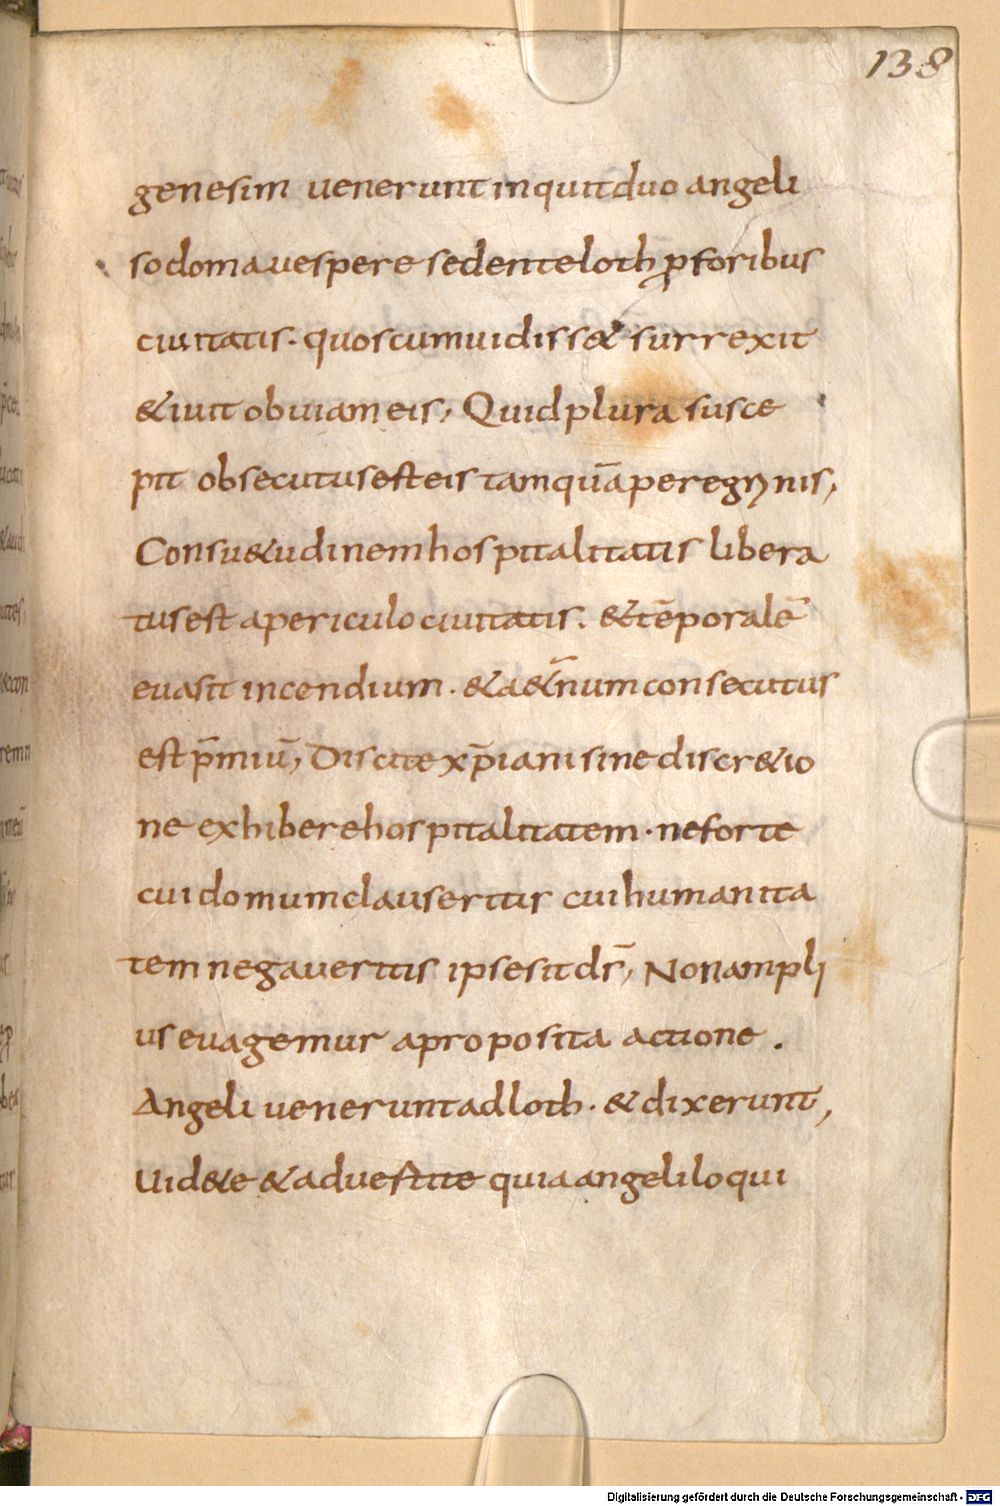 138
genesim uenerunt inquit duo angeli
sodoma uespere sedente loth p̱ foribus
ciuitatis. quos cum uidiss& surrexit
& iuit obuiam eis, Quid plura susce
pit obsecutus est eis tamquā peregrinis,
Consu&udinem hospitalitatis libera
tus est a periculo ciuitatis. & tēporalē
euasit incendium. & a&̄num consecutus
est p̄miū, Discite xp̄iani sine discr&io
ne exhibere hospitalitatem. ne forte
cui domum clauseritis cui humanita
tem negaueritis ipse sit ds̄, Non ampli
us euagemur a proposita actione.
Angeli uenerunt ad loth. & dixerunt,
Uid&e & aduertite quia angeli loqui
Digitalisierung gefördert durch die Deutsche Forschungsgemeinschaft - DFG